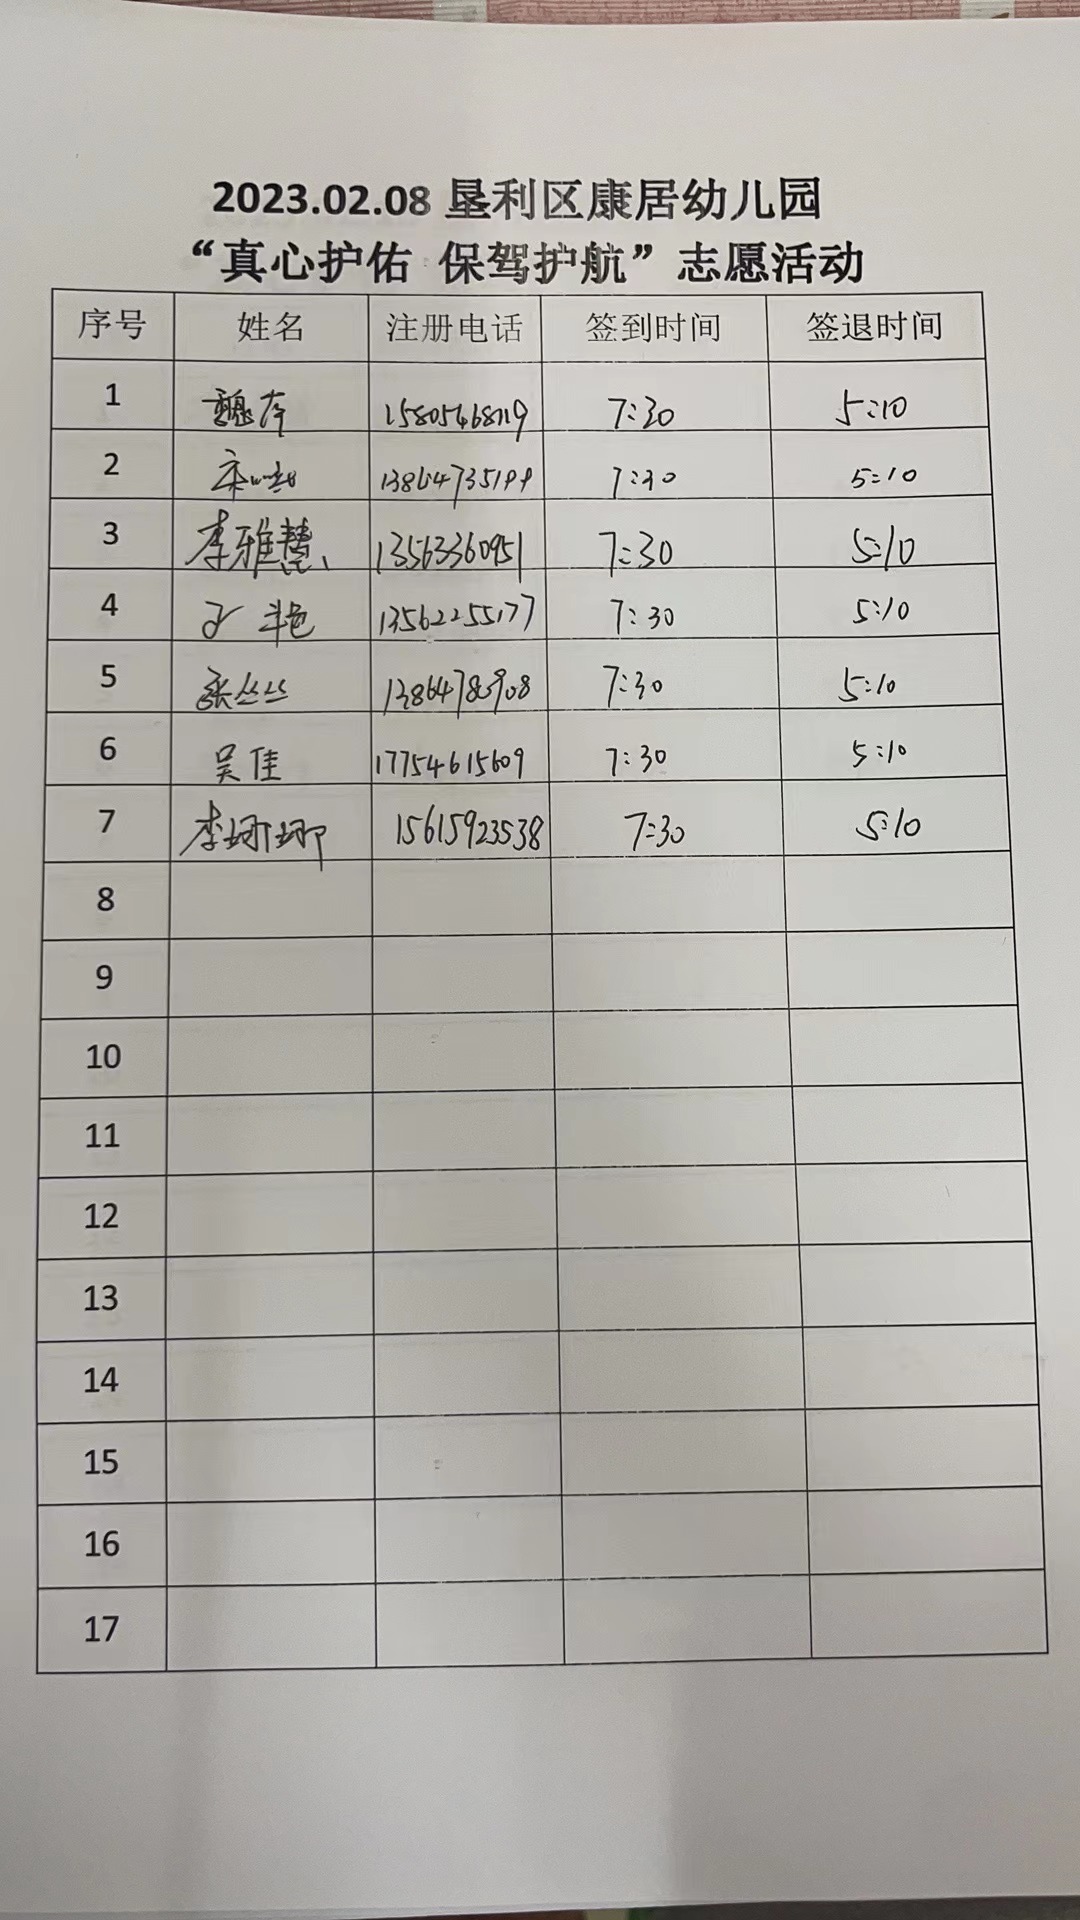 2023.02.08 垦利区康居幼儿园
“真心护佑 保驾护航”志愿活动
序号 姓名 注册电话 签到时间 签退时间
1 魏存 7:30 5:10
2 7:30 5:10
3 李雅慧 13563360951 7:30 5:10
4 13562255177 7:30 5:10
5 张丛丛 7:30 5:10
6 吴佳 17754615609 7:30 5:10
7 李娜娜 15615923538 7:30 5:10
8
9
10
11
12
13
14
15
16
17